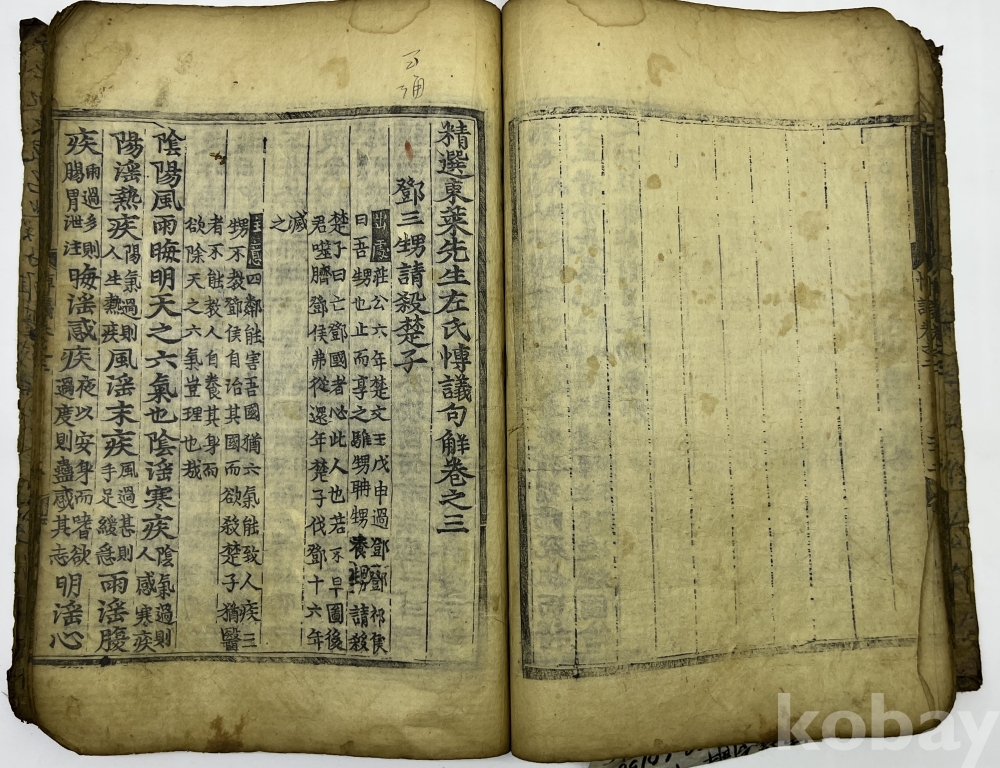 精選東萊先生左氏博議句解卷之三
鄧三甥請殺楚子
出處 莊公六年楚文王戊申過鄧鄧祁侯
曰吾甥也止而享之騅聃甥養甥請殺
楚子曰亡鄧國者必此人也若不早圖後
君噬臍鄧侯弗從還年楚子伐鄧十六年
滅
之
主意 四鄰能害吾國猶六氣能致人疾三
甥不教鄧侯自治其國而欲殺楚子猶醫
者不能教人自養其身而
欲除天之六氣豈理也哉
陰陽風雨晦明天之六氣也陰淫寒疾陰氣過則人感寒疾
陽淫熱疾陽氣過則人生熱疾風淫末疾風過甚則手足緩急雨淫腹
疾雨過多則腸胃泄注晦淫惑疾夜以安身而嗜欲過度則蠱惑其志明淫心
kobay